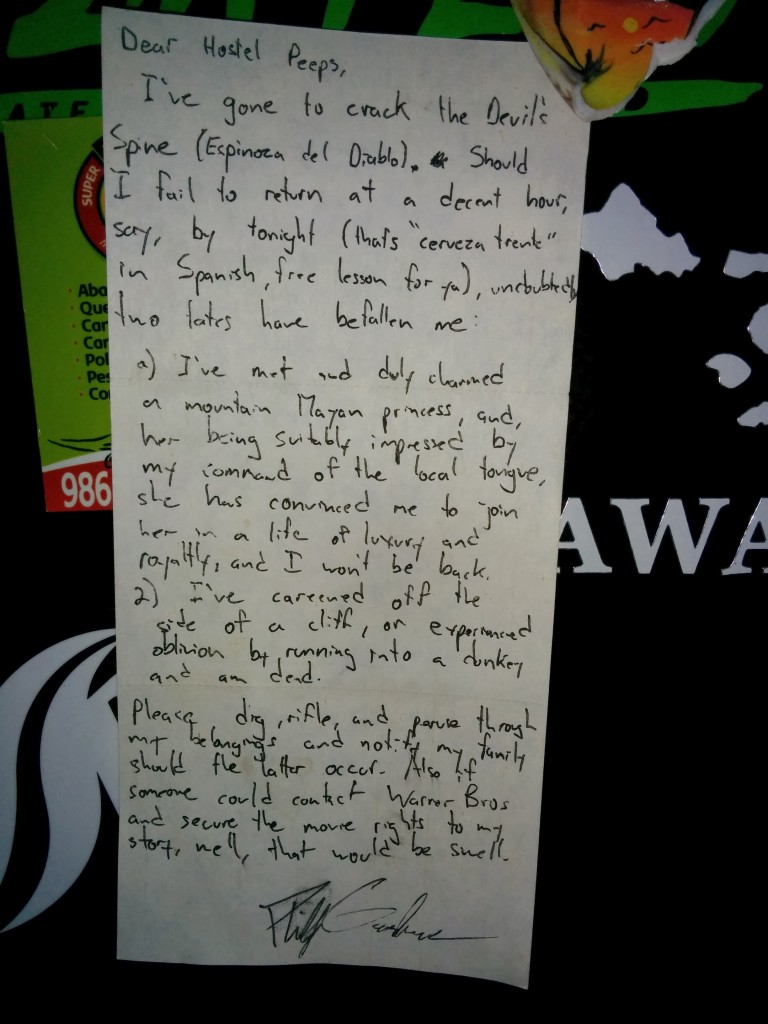 Dear Hostel Peeps,
I've gone to crack the Devil's
Spine (Espinoza del Diablo). Should
I fail to return at a decent hour,
say, by tonight (thats "cerveza trente"
in Spanish, free lesson for ya), undoubtedly
two fates have befallen me:
a) I've met and duly charmed
a mountain Mayan princess, and,
her being suitably impressed by
my command of the local tongue,
she has convinced me to join
her in a life of luxury and
royaltly, and I won't be back.
2) I've careened off the
side of a cliff, or experienced
oblivion by running into a donkey
and am dead.
Please dig, rifle, and peruse through
my belongings and notify my family
should the latter occur. Also if
someone could contact Warner Bros
and secure the movie rights to my
story, well, that would be swell.
SUPER
Aba
Que
Car
Car
Pol
Pes
Co
986
AWA